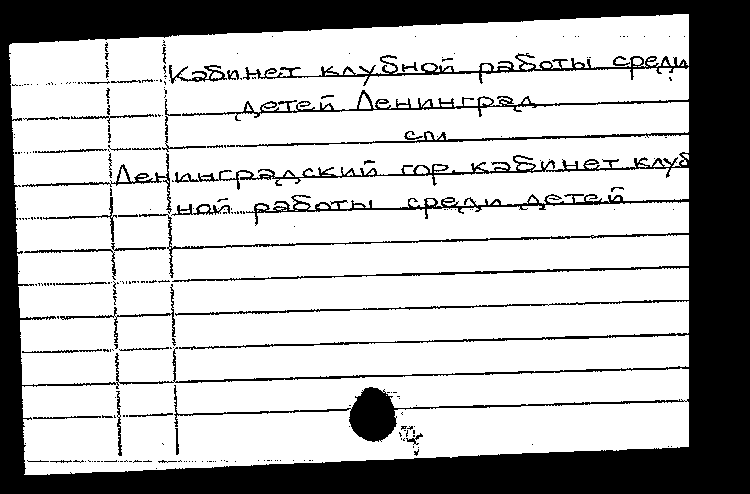 Кабинет клубной работы среди
детей Ленинград
см
Ленинградский гор. кабинет клуб
ной работы среди детей